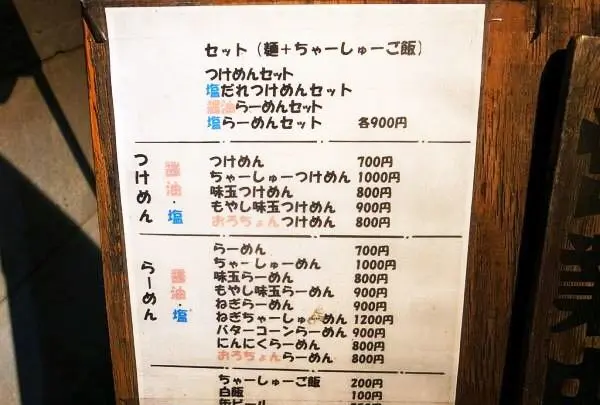 セット（麺＋ちゃーしゅーご飯）
つけめんセット
塩だれつけめんセット
醤油らーめんセット
塩らーめんセット 各900円
つけめん 醤油・塩
つけめん 700円
ちゃーしゅーつけめん 1000円
味玉つけめん 800円
もやし味玉つけめん 900円
おろちょんつけめん 800円
らーめん 醤油・塩
らーめん 700円
ちゃーしゅーめん 1000円
味玉らーめん 800円
もやし味玉らーめん 900円
ねぎらーめん 900円
ねぎちゃーしゅーめん 1200円
バターコーンらーめん 900円
にんにくらーめん 800円
おろちょんらーめん 800円
ちゃーしゅーご飯 200円
白飯 100円
缶ビール